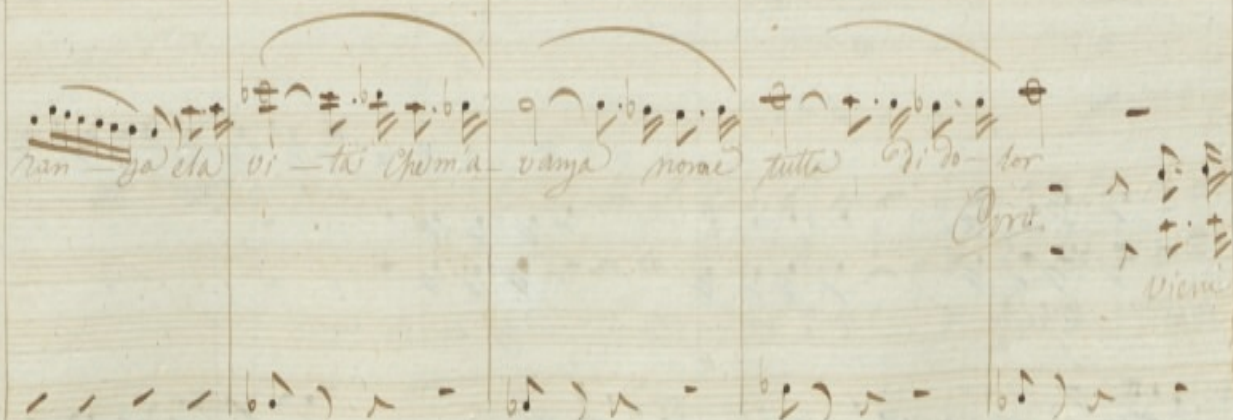 ran - za e la vi - ta che m'a - vanza non è tutta di do - lor
Coro
vieni